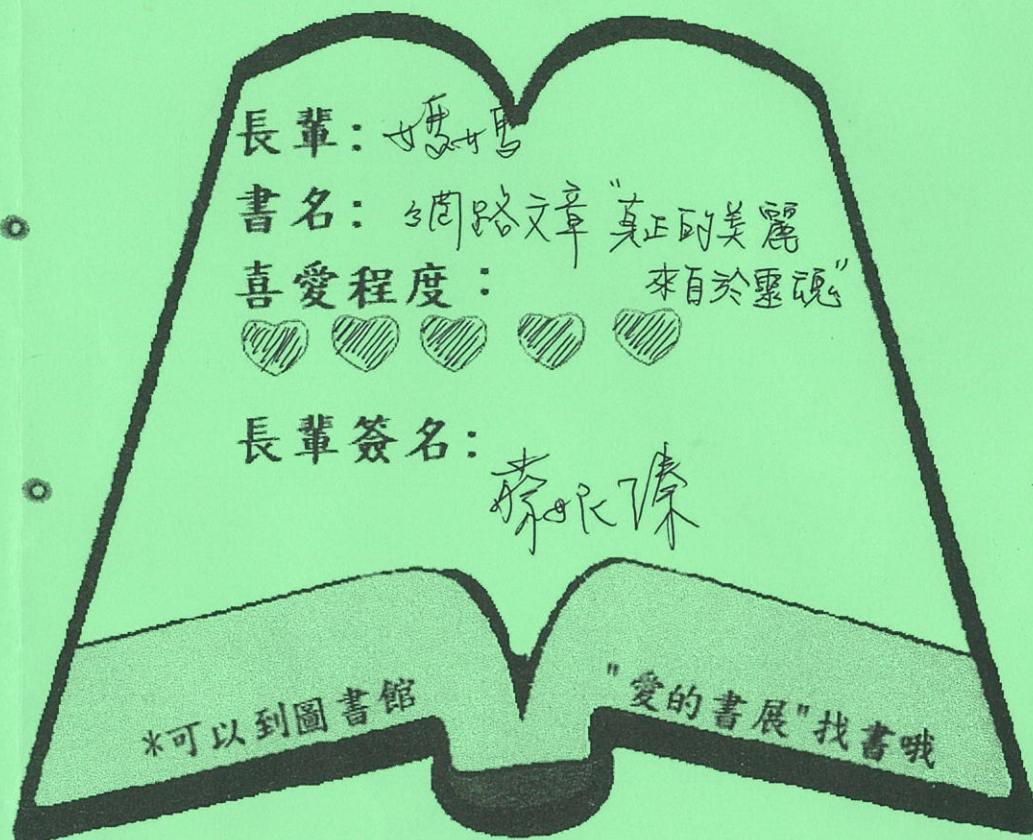 長輩：媽媽
書名：網路文章"真正的美麗
來自於靈魂"
喜愛程度：
長輩簽名：
*可以到圖書館
"愛的書展"找書哦